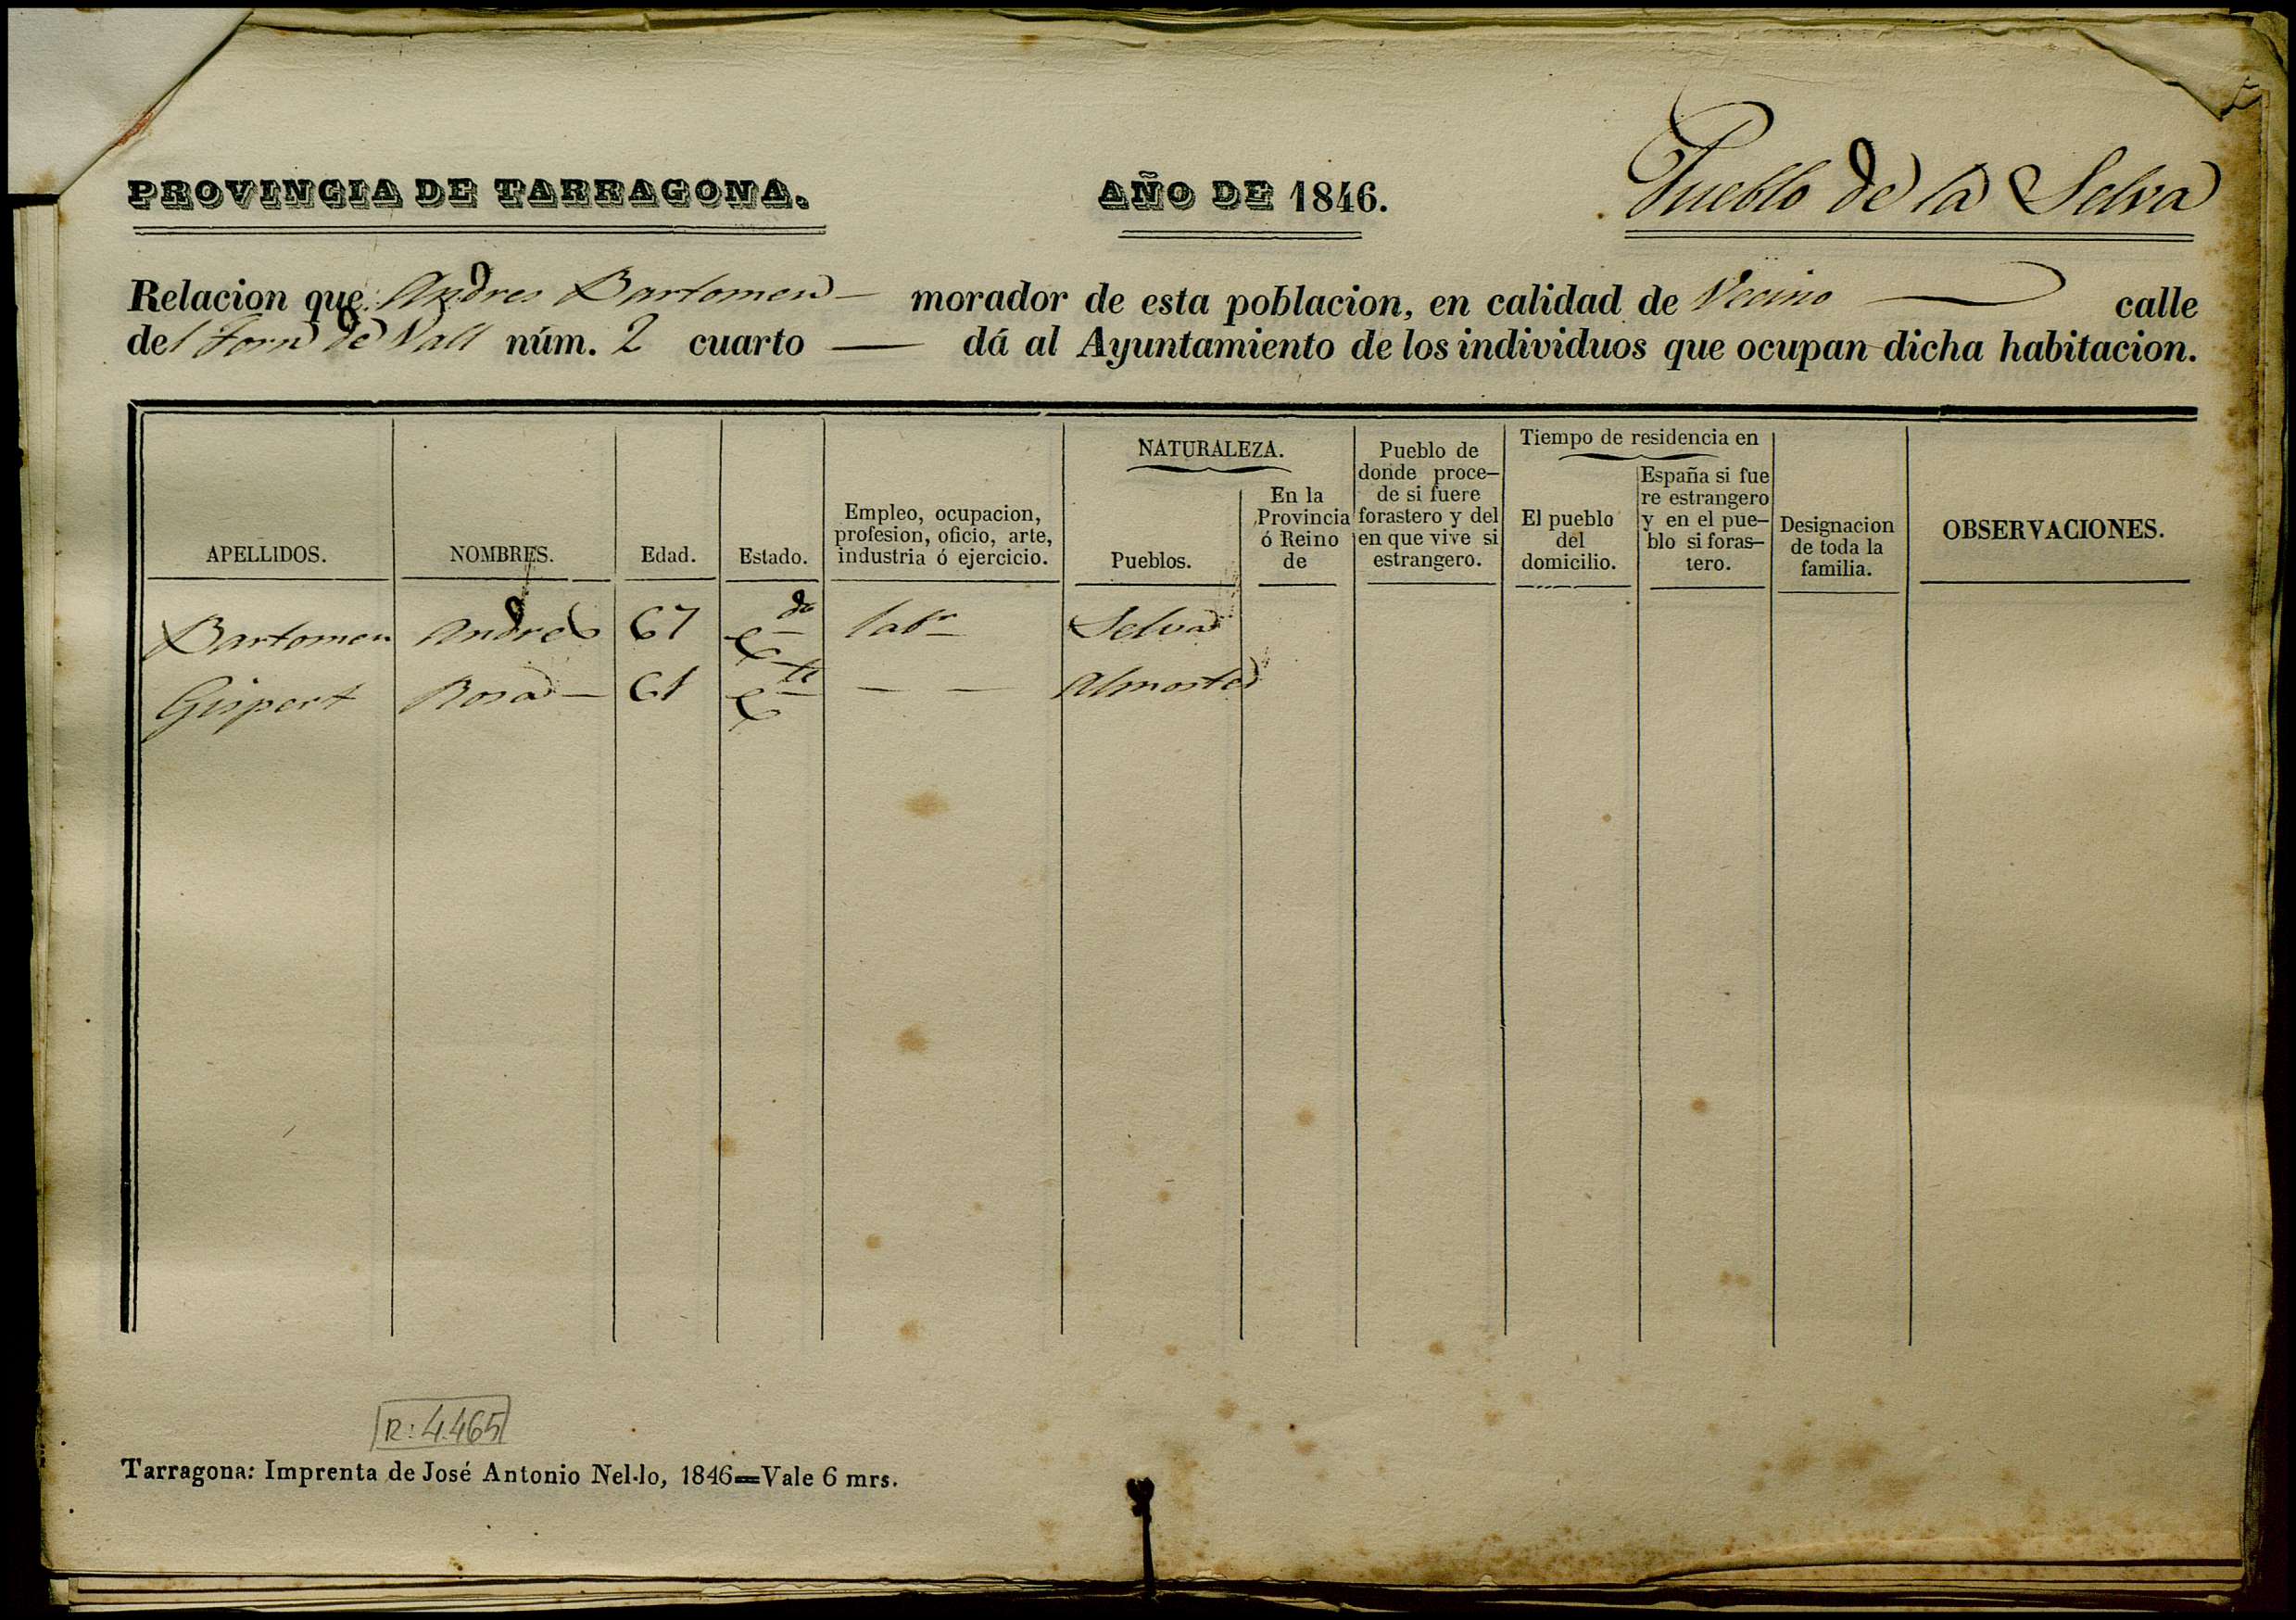 PROVINCIA DE TARRAGONA. AÑO DE 1846. Pueblo de la Selva
Relacion que Andres Bartomeu — morador de esta poblacion, en calidad de Vecino — calle
del Forn de Vall núm. 2 cuarto — dá al Ayuntamiento de los individuos que ocupan dicha habitacion.
APELLIDOS.
NOMBRES.
Edad.
Estado.
Empleo, ocupacion,
profesion, oficio, arte,
industria ó ejercicio.
NATURALEZA.
Pueblos.
En la
Provincia
ó Reino
de
Pueblo de
donde proce—
de si fuere
forastero y del
en que vive si
estrangero.
Tiempo de residencia en
El pueblo
del
domicilio.
España si fue
re estrangero
y en el pue—
blo si foras—
tero.
Designacion
de toda la
familia.
OBSERVACIONES.
Bartomeu Andres 67 C.do labr Selva
Gispert Rosa — 61 — — Almoster
R: 4.465
Tarragona: Imprenta de José Antonio Nel·lo, 1846=Vale 6 mrs.